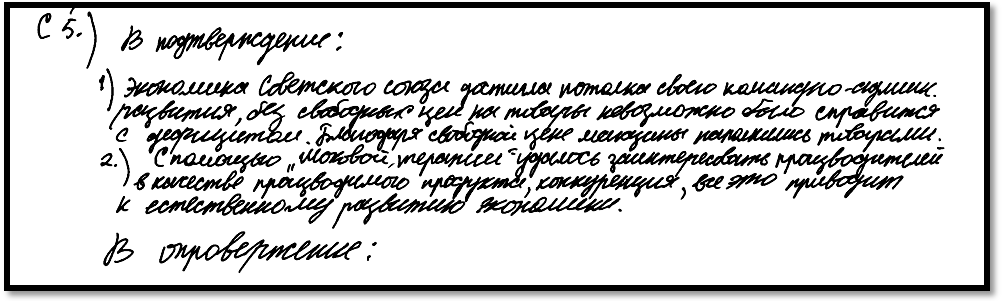 С 5.) В подтверждение:
1) Экономика Советского союза достигла потолка своего командно-админ.
развития, без свободных цен на товары невозможно было справится
с дефицитом. Благодаря свободной цене магазины наполнились товарами.
2.) С помощью "шоковой терапии" удалось заинтересовать производителей
в качестве производимого продукта, конкуренция, все это приводит
к естественному развитию экономики.
В опровержение: